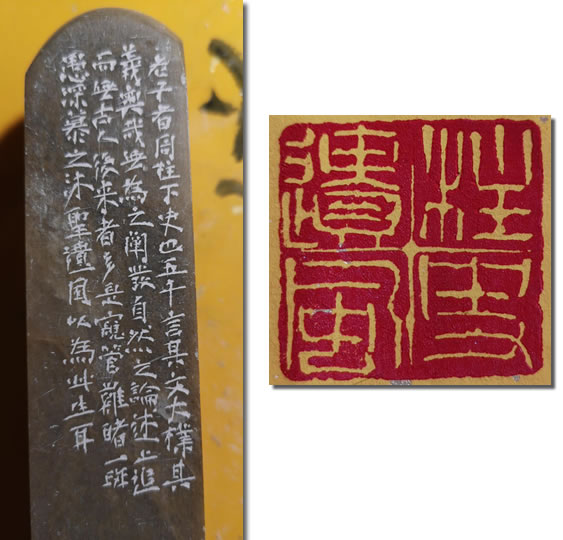 老子者周柱下史也五千言其文大樸其
義奧哉無為之闡發自然之論述上追
而無古人後来者多是窺管難睹一斑
愚深慕之沐聖遺風以為此生耳
柱史
遺風